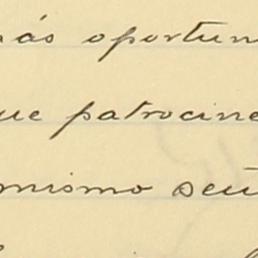 más oportun
que patrocine
mismo señ